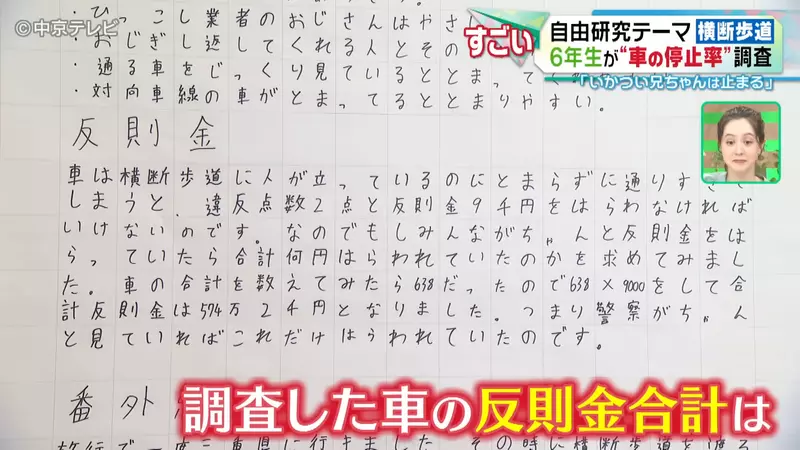 ©中京テレビ
すごい
自由研究テーマ 横断歩道
6年生が“車の停止率”調査
「いかつい兄ちゃんは止まる」
・ひっこし業者のおじさんはやさし
・おじぎし返してくれる人とその
・通る車をじっくり見ているととまってく
・対向車線の車がとまってるととまりやすい。
反則金
車は横断歩道に人が立っているのにとまらずに通りすぎ
しまうと、違反点数2点と反則金9千円をはらわなければ
いけないのです。なのでもしみんながちゃんと反則金をは
らっていたら合計何円はらわれていたのかを求めてみまし
た。車の合計を数えてみたら638だったので638×9000をして合
計反則金は574万2千円となりました。つまり警察がちゃん
と見ていればこれだけはらわれていたのです。
番外
旅行で一度三重県に行きました。その時に横断歩道を渡る
調査した車の反則金合計は